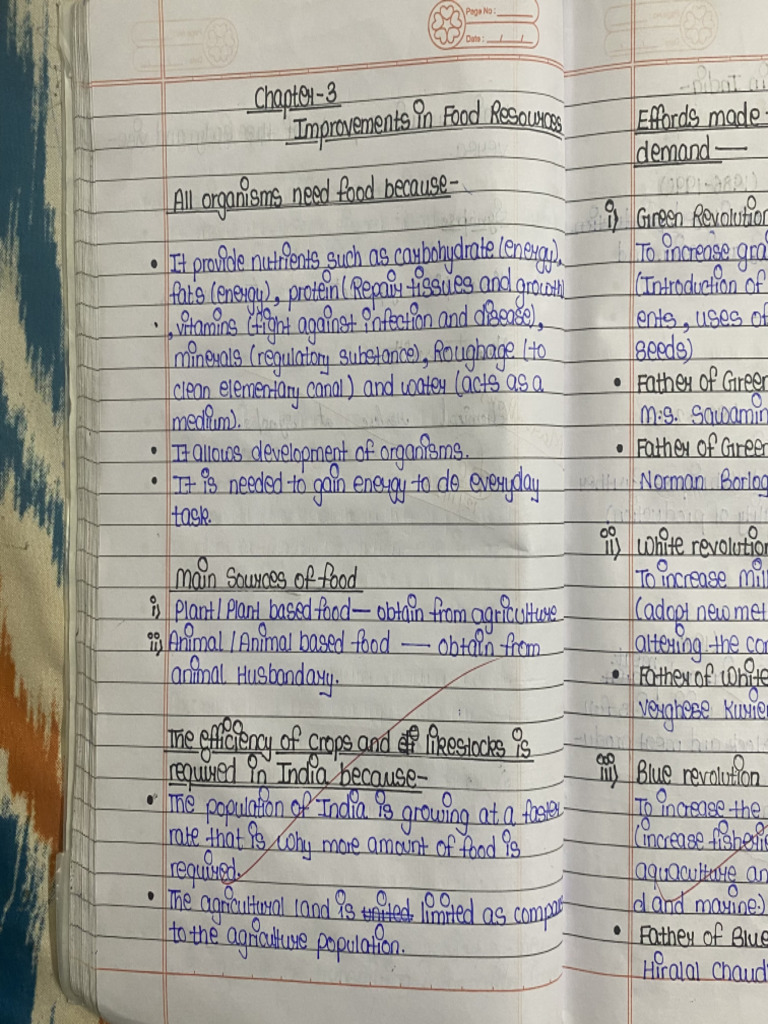 Page No:
Date: / /
Chapter-3
Improvements in Food Resources
All organisms need food because-
• It provide nutrients such as carbohydrate (energy),
fats (energy), protein (Repair tissues and growth)
, vitamins (fight against infection and disease),
minerals (regulatory substance), Roughage (to
clean elementary canal) and water (acts as a
medium).
• It allows development of organisms.
• It is needed to gain energy to do everyday
task.
Main Sources of food
i) Plant/Plant based food— obtain from agriculture
ii) Animal/Animal based food — obtain from
animal Husbandary.
The efficiency of crops and likestocks is
required in India because-
• The population of India is growing at a faster
rate that is why more amount of food is
required.
• The agricultural land is united limited as compare
to the agriculture population.
Effords made
demand —
i) Green Revolution
To increase gra
(Introduction of
ents, uses of
seeds)
• Father of Green
M.S. Swamin
• Father of Green
Norman Borlag
ii) White revolution
To increase mil
(adopt new met
altering the co
• Father of White
Verghese Kurie
iii) Blue revolution
To increase the
(increase fisherie
aquaculture an
d and marine.)
• Father of Blue
Hiralal Chaud